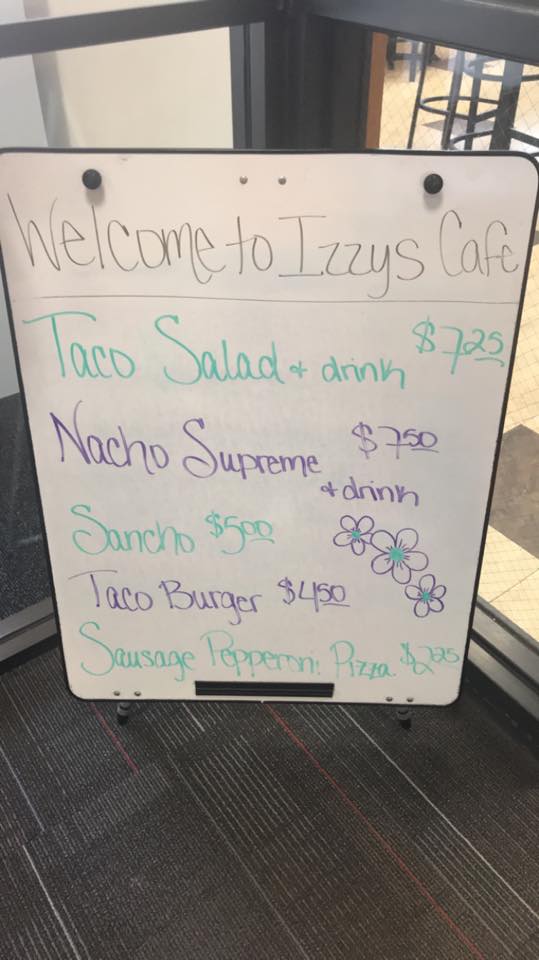 Welcome to Izzys Cafe
Taco Salad + drink $7.25
Nacho Supreme $7.50
+ drink
Sancho $5.00
Taco Burger $4.50
Sausage Pepperoni Pizza $2.25